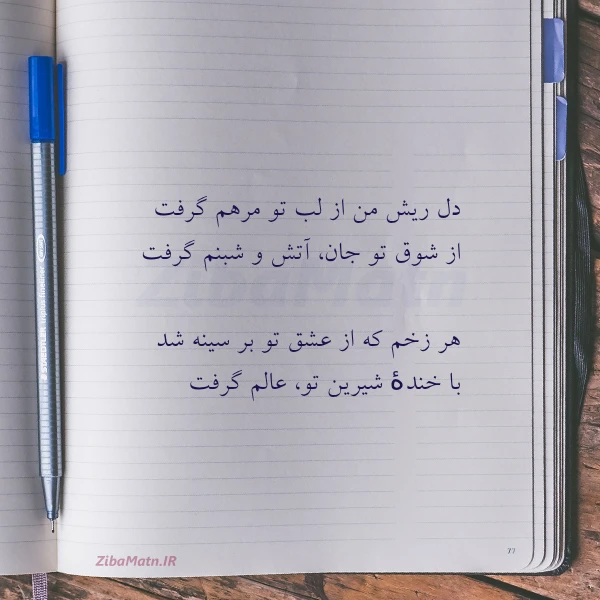 دل ریش من از لب تو مرهم گرفت
از شوق تو جان، آتش و شبنم گرفت
هر زخم که از عشق تو بر سینه شد
با خندهٔ شیرین تو، عالم گرفت
ZibaMatn.IR